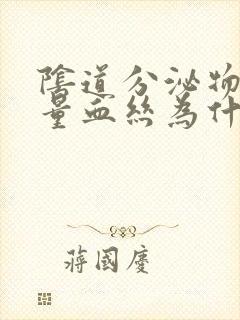 陰道分泌物
量血絲為什
蔣國慶